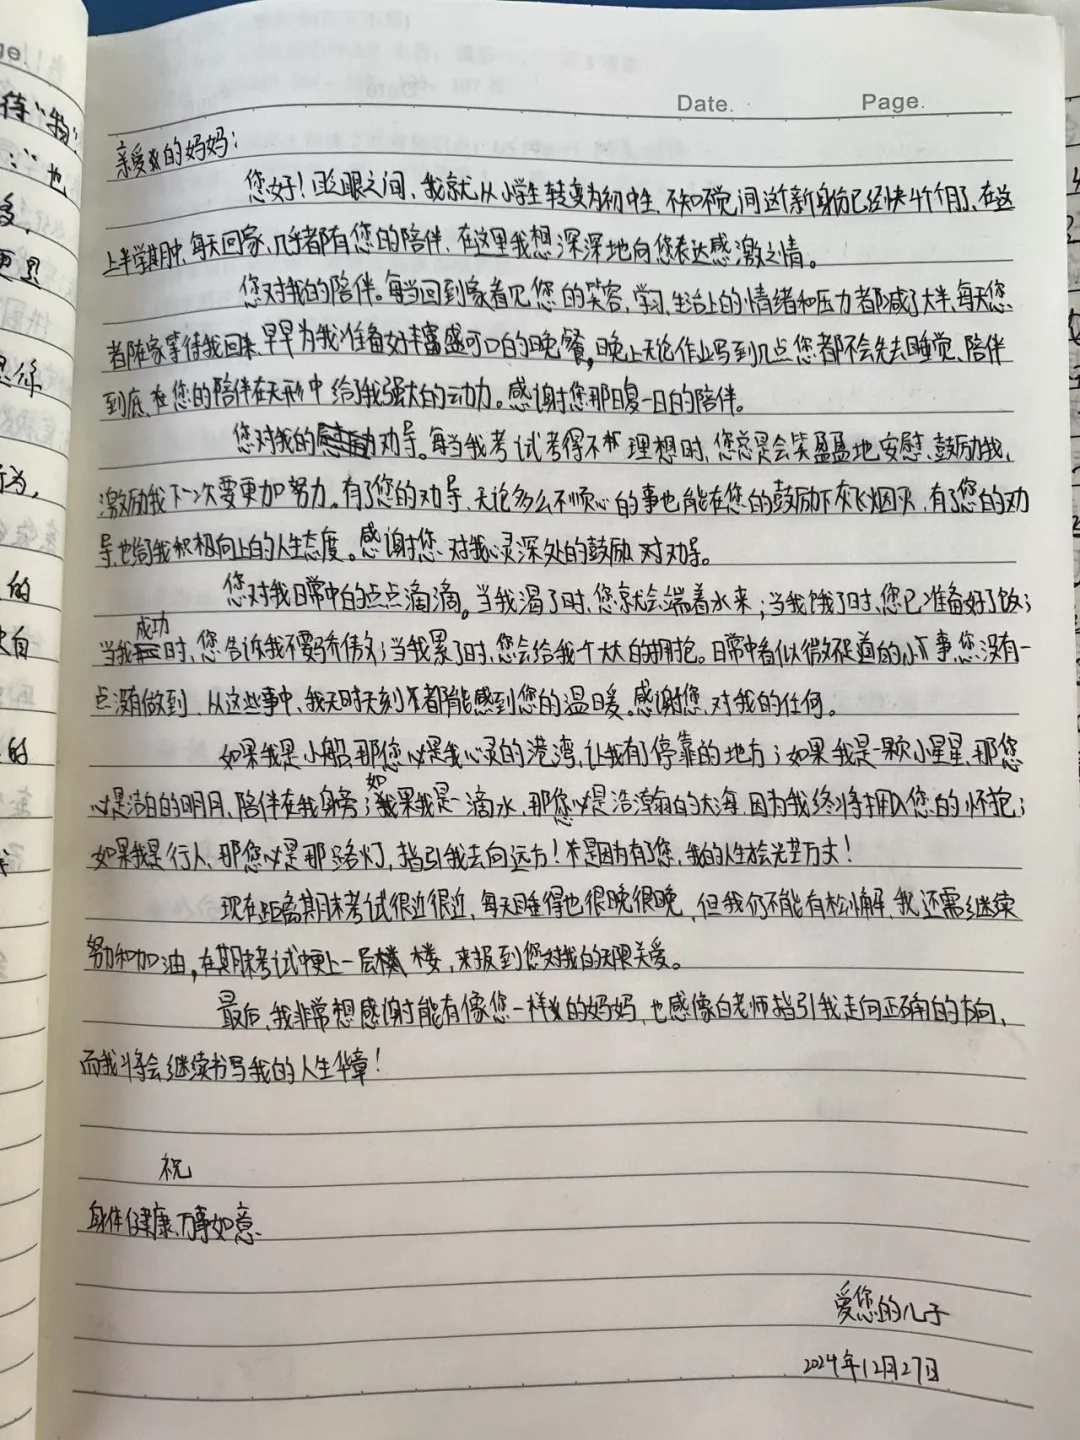 Date. Page.
亲爱的妈妈：
您好！眨眼之间，我就从小学生转变为初中生，不知不觉间这个新身份已经快4个月了，在这
上半学期中，每天回家，几乎都有您的陪伴，在这里我想深深地向您表达感激之情。
您对我的陪伴。每当回到家看见您的笑容，学习、生活上的情绪和压力都减了大半，每天您
都在家等待我回来，早早为我准备好丰富盛可口的晚餐，晚上无论作业写到几点您都不会先去睡觉、陪伴
到底，在您的陪伴在无形中给了我强大的动力。感谢您那日复一日的陪伴。
您对我的劝导。每当我考试考得不理想时，您总是会笑盈盈地安慰、鼓励我，
激励我下一次要更加努力。有了您的劝导，无论多么不顺心的事也能在您的鼓励下灰飞烟灭，有了您的劝
导，也给了我积极向上的人生态度。感谢您，对我心灵深处的鼓励，对劝导。
您对我日常中的点点滴滴。当我渴了时，您就会端着水来；当我饿了时，您已准备好了饭；
当我成功时，您告诉我不要骄傲；当我累了时，您会给我个大大的拥抱。日常中看似微不足道的小事，您没有一
点没有做到，从这些事中，我无时无刻不都能感到您的温暖。感谢您，对我的任何。
如果我是小船，那您必是我心灵的港湾，让我有停靠的地方；如果我是一颗小星星，那您
必是洁白的明月，陪伴在我身旁；如果我是一滴水，那您必是浩瀚的大海，因为我终将拥入您的怀抱；
如果我是行人，那您必是那路灯，指引我去向远方！是因为有了您，我的人生才会光芒万丈！
现在距离期末考试很近很近，每天睡得也很晚很晚，但我仍不能有松懈，我还需继续
努力和加油，在期末考试中更上一层楼，来报到您对我的无限关爱。
最后，我非常想感谢能有像您一样的妈妈，也感像白老师指引我走向正确的方向，
而我将会继续书写我的人生华章！
祝
身体健康，万事如意
爱您的儿子
2024年12月27日